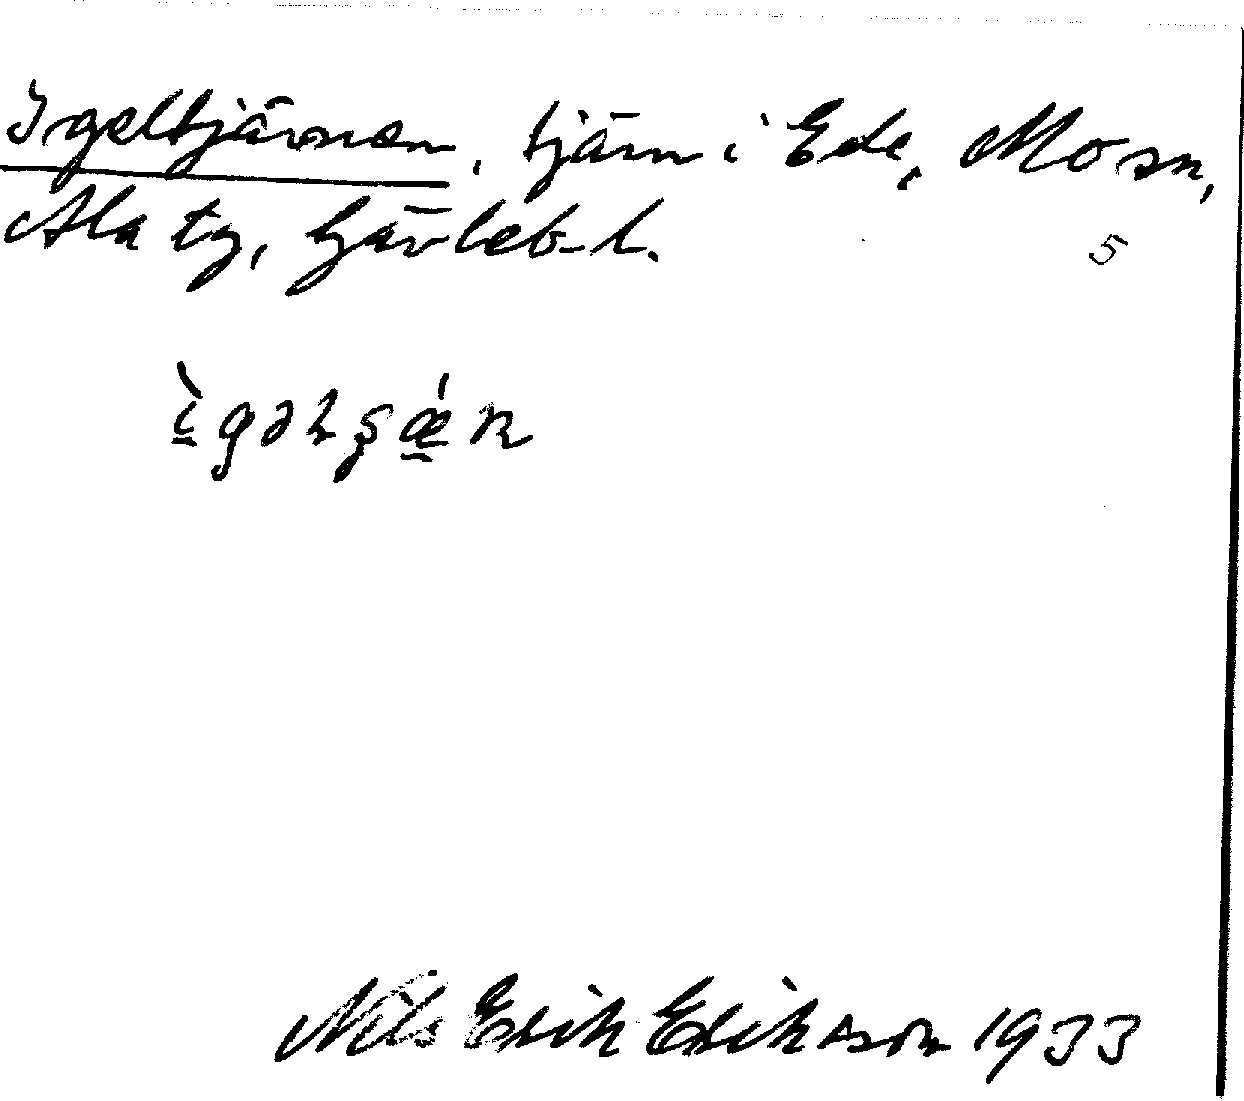 Igeltjärnen, tjärn i Ede, Mo sn,
Ala tg, Gävleb. l.
5
ὶgəlʂǽn
Nils Erik Eriksson 1933